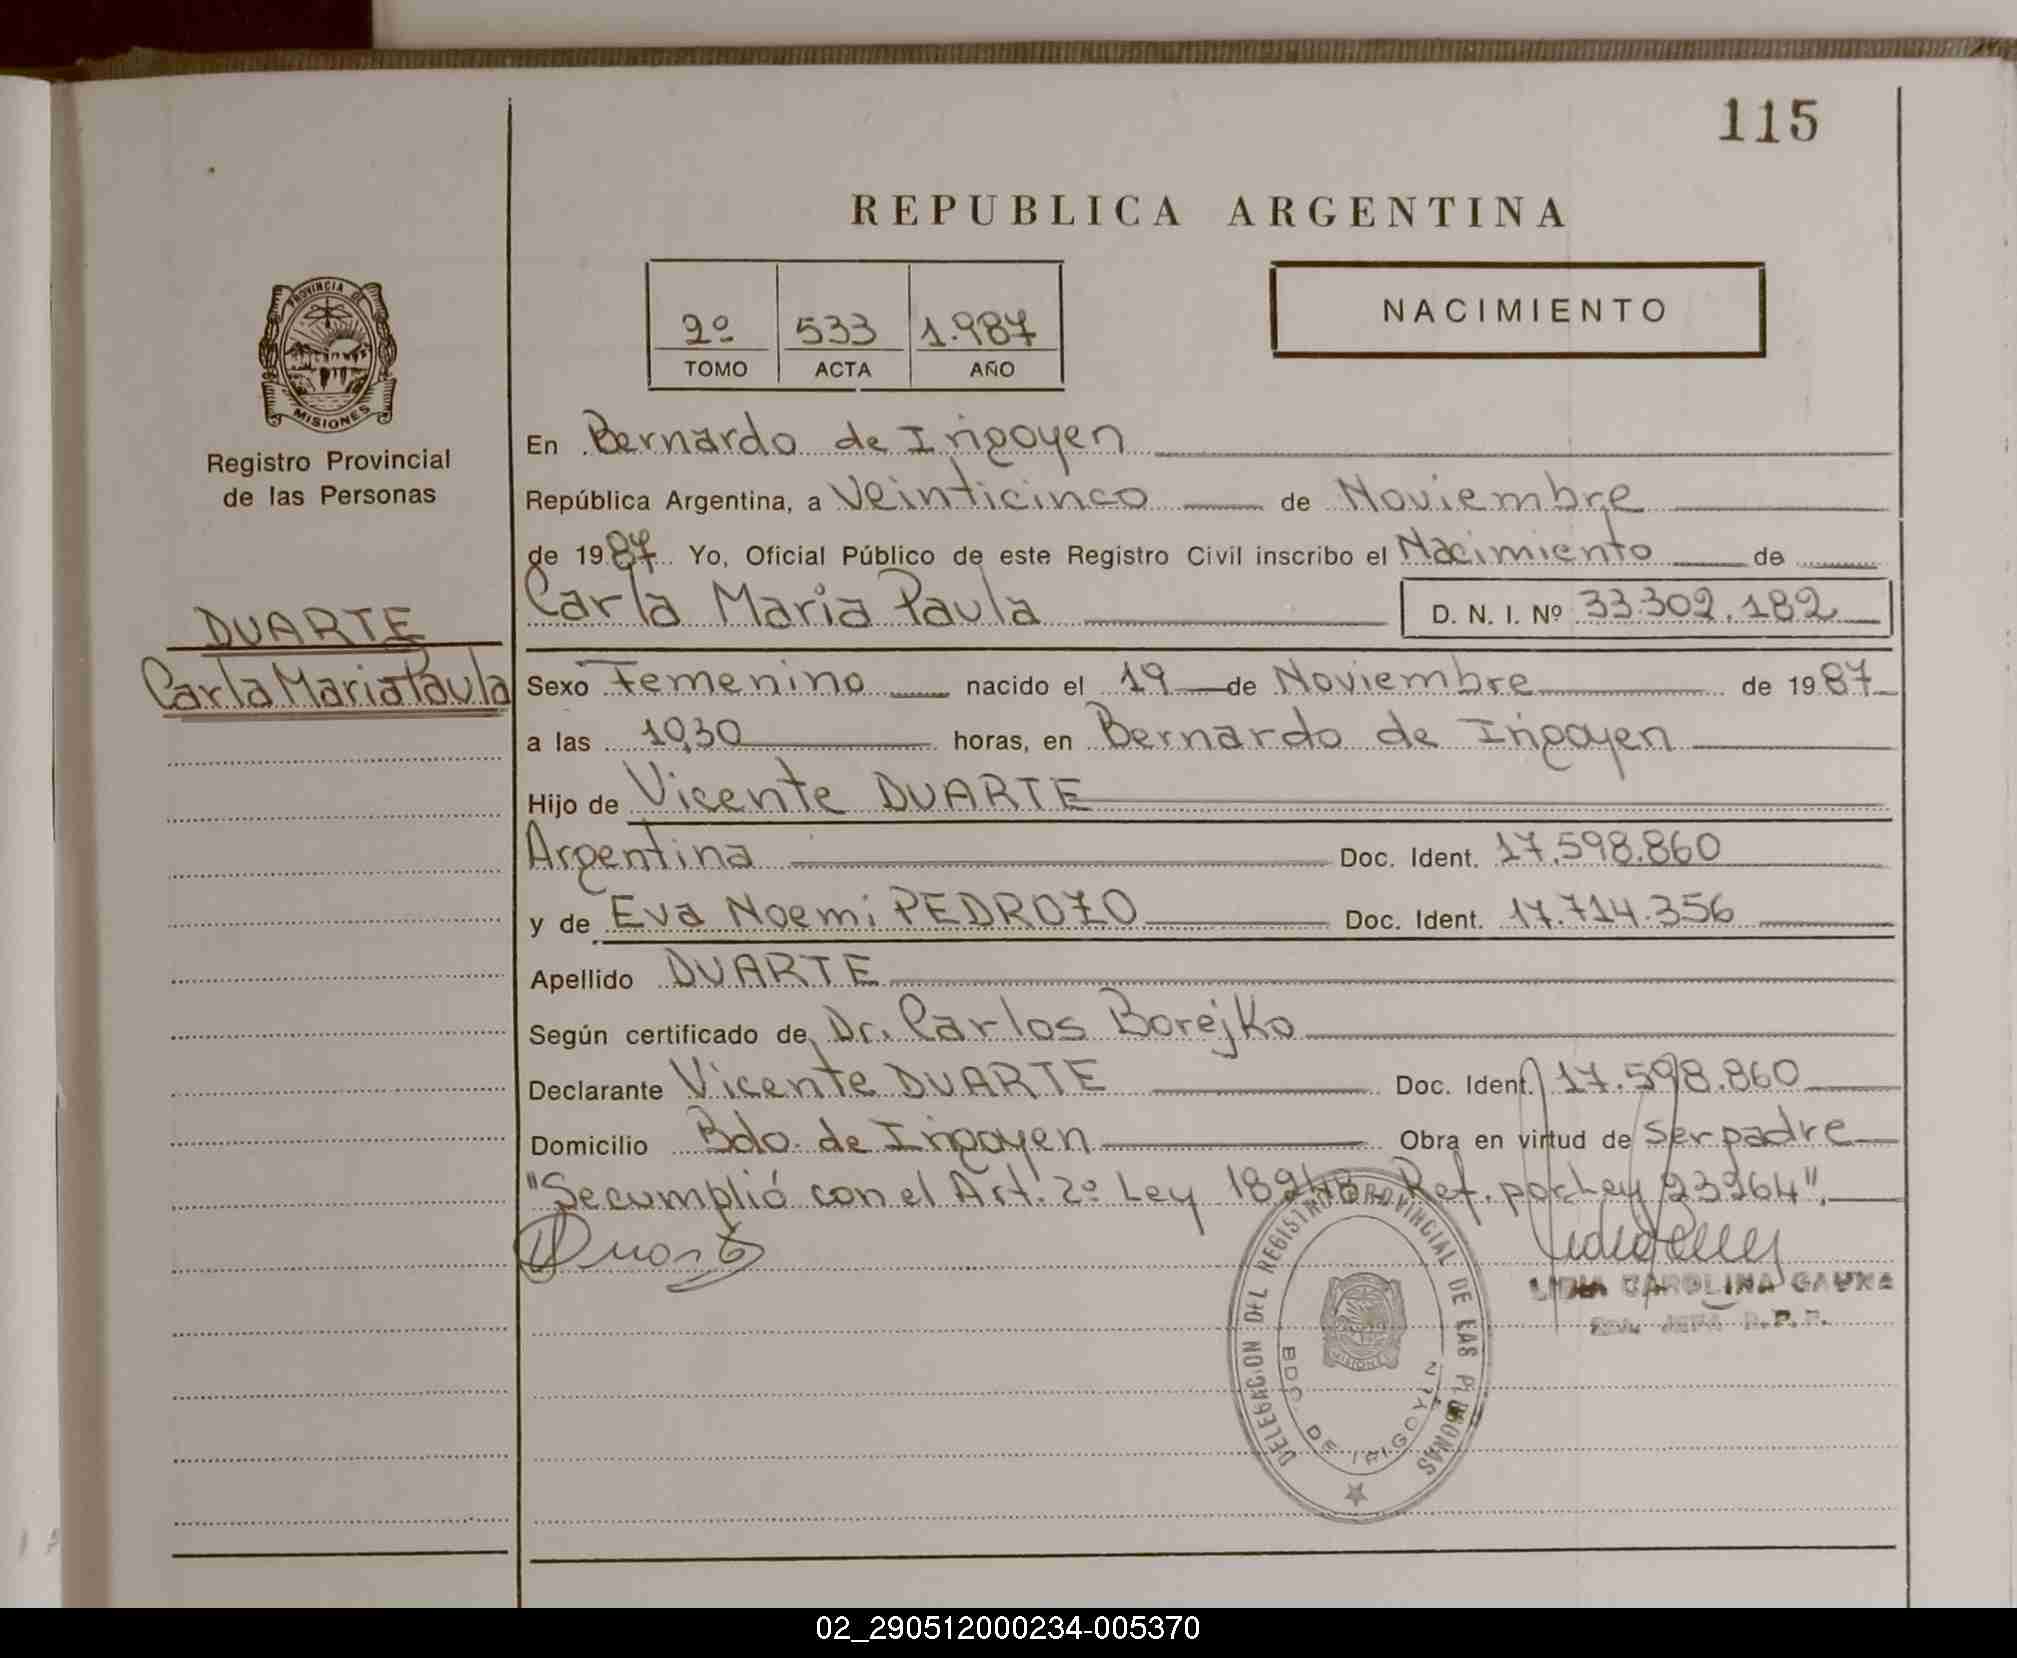 115
REPUBLICA ARGENTINA
2º 533 1.987
TOMO ACTA AÑO
NACIMIENTO
PROVINCIA DE
MISIONES
Registro Provincial
de las Personas
DUARTE
Carla Maria Paula
En Bernardo de Irigoyen
República Argentina, a Veinticinco de Noviembre
de 1987 Yo, Oficial Público de este Registro Civil inscribo el Nacimiento de
Carla Maria Paula D. N. I. Nº 33.302.182
Sexo Femenino nacido el 19 de Noviembre de 1987
a las 10,30 horas, en Bernardo de Irigoyen
Hijo de Vicente DUARTE
Argentina Doc. Ident. 17.598.860
y de Eva Noemi PEDROZO Doc. Ident. 17.714.356
Apellido DUARTE
Según certificado de Dr. Carlos Borejko
Declarante Vicente DUARTE Doc. Ident. 17.598.860
Domicilio Bdo. de Irigoyen Obra en virtud de ser padre
"Se cumplió con el Art. 2º Ley 18248 Ref. por Ley 23264".
Duarte
LIDIA CAROLINA GAUNA
JEFA R.P.P.
DELEGACION DEL REGISTRO PROVINCIAL DE LAS PERSONAS
BDO. DE IRIGOYEN
MISIONES
02_290512000234-005370